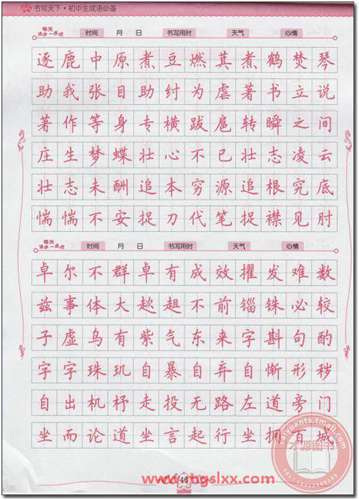 书写天下·初中生成语必备
每天进步一点点 时间 月 日 书写用时 天气 心情
逐鹿中原煮豆燃萁煮鹤焚琴
助我张目助纣为虐著书立说
著作等身专横跋扈转瞬之间
庄生梦蝶壮心不已壮志凌云
壮志未酬追本穷源追根究底
惴惴不安捉刀代笔捉襟见肘
每天进步一点点 时间 月 日 书写用时 天气 心情
卓尔不群卓有成效擢发难数
兹事体大趑趄不前锱铢必较
子虚乌有紫气东来字斟句酌
字字珠玑自暴自弃自惭形秽
自出机杼走投无路左道旁门
坐而论道坐言起行坐拥百城